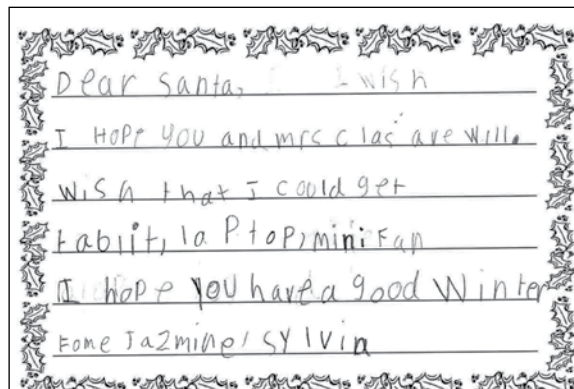 Dear Santa, I wish
I HoPe you and mrs clas are will.
wish that I could get
tabiit, la PtoP, mini Fan
I hope you have a good Winter
Fome Jazmine/ Sylvia